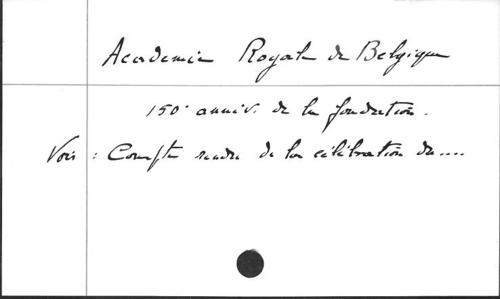 Academie Royale de Belgique
150e anniv. de la fondation.
Voir : Compte rendu de la célébration du....